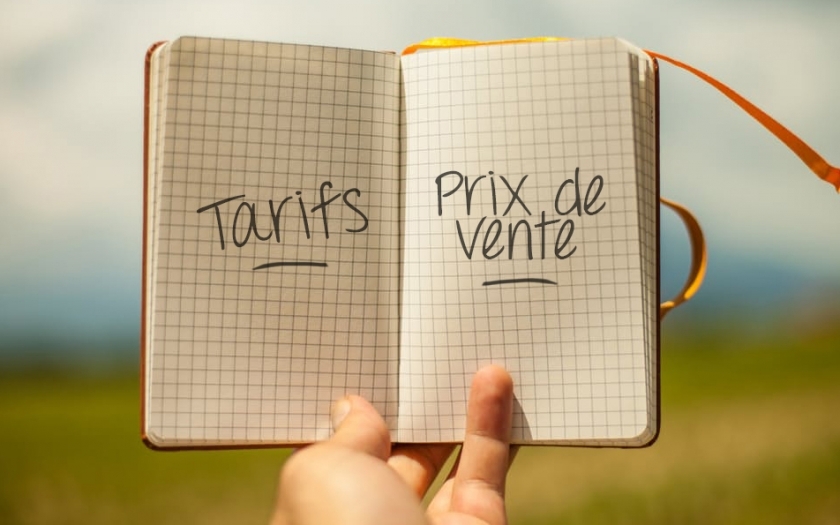 Tarifs
Prix de
vente